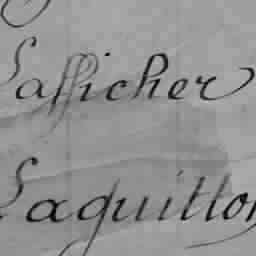 Lafficher
Laquitton